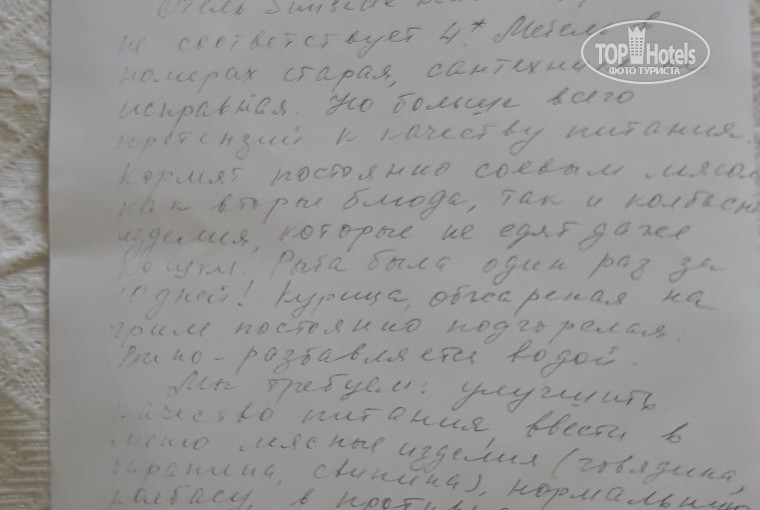 Отель Sunside
не соответствует 4*. Мебель в
номерах старая, сантехника
исправная. Но больше всего
претензий к качеству питания.
Кормят постоянно соевым мясом
как вторые блюда, так и колбасн
изделия, которые не едят даже
кошки. Рыба была один раз за
10 дней! Курица, обжареная на
гриле постоянно подгорелая.
Вино - разбавляется водой.
Мы требуем: улучшить
качество питания, ввести в
меню мясные изделия (говядина,
баранина, свинина), нормальную
колбасу, в против
TOP Hotels
ФОТО ТУРИСТА